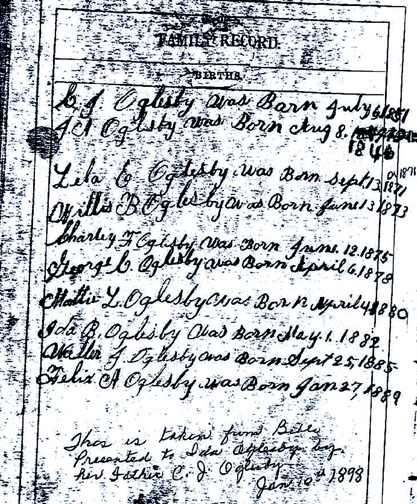 FAMILY RECORD.
BIRTHS.
C. J. Oglesby was Barn July 6 1851
Oglsby was Born Aug 8.
1846
Lela E. Oglesby was Born Sept 13 1871
or 1871
Willis B Oglesby was Born June 13 1873
Charley F Oglisby was Born June 12 1875
George C. Oglesby was Born April 6 1878
Mattie L. Oglesby was Born April 4 1880
Ida B. Oglesby was Born May. 1. 1882
Walter J. Oglesby was Born Sept 25, 1885
Felix A Oglesby was Born Jan 27, 1889
This is taken from Bible
Presented to Ida Oglesby by
her Father C. J. Oglesby
Jan 10th 1898